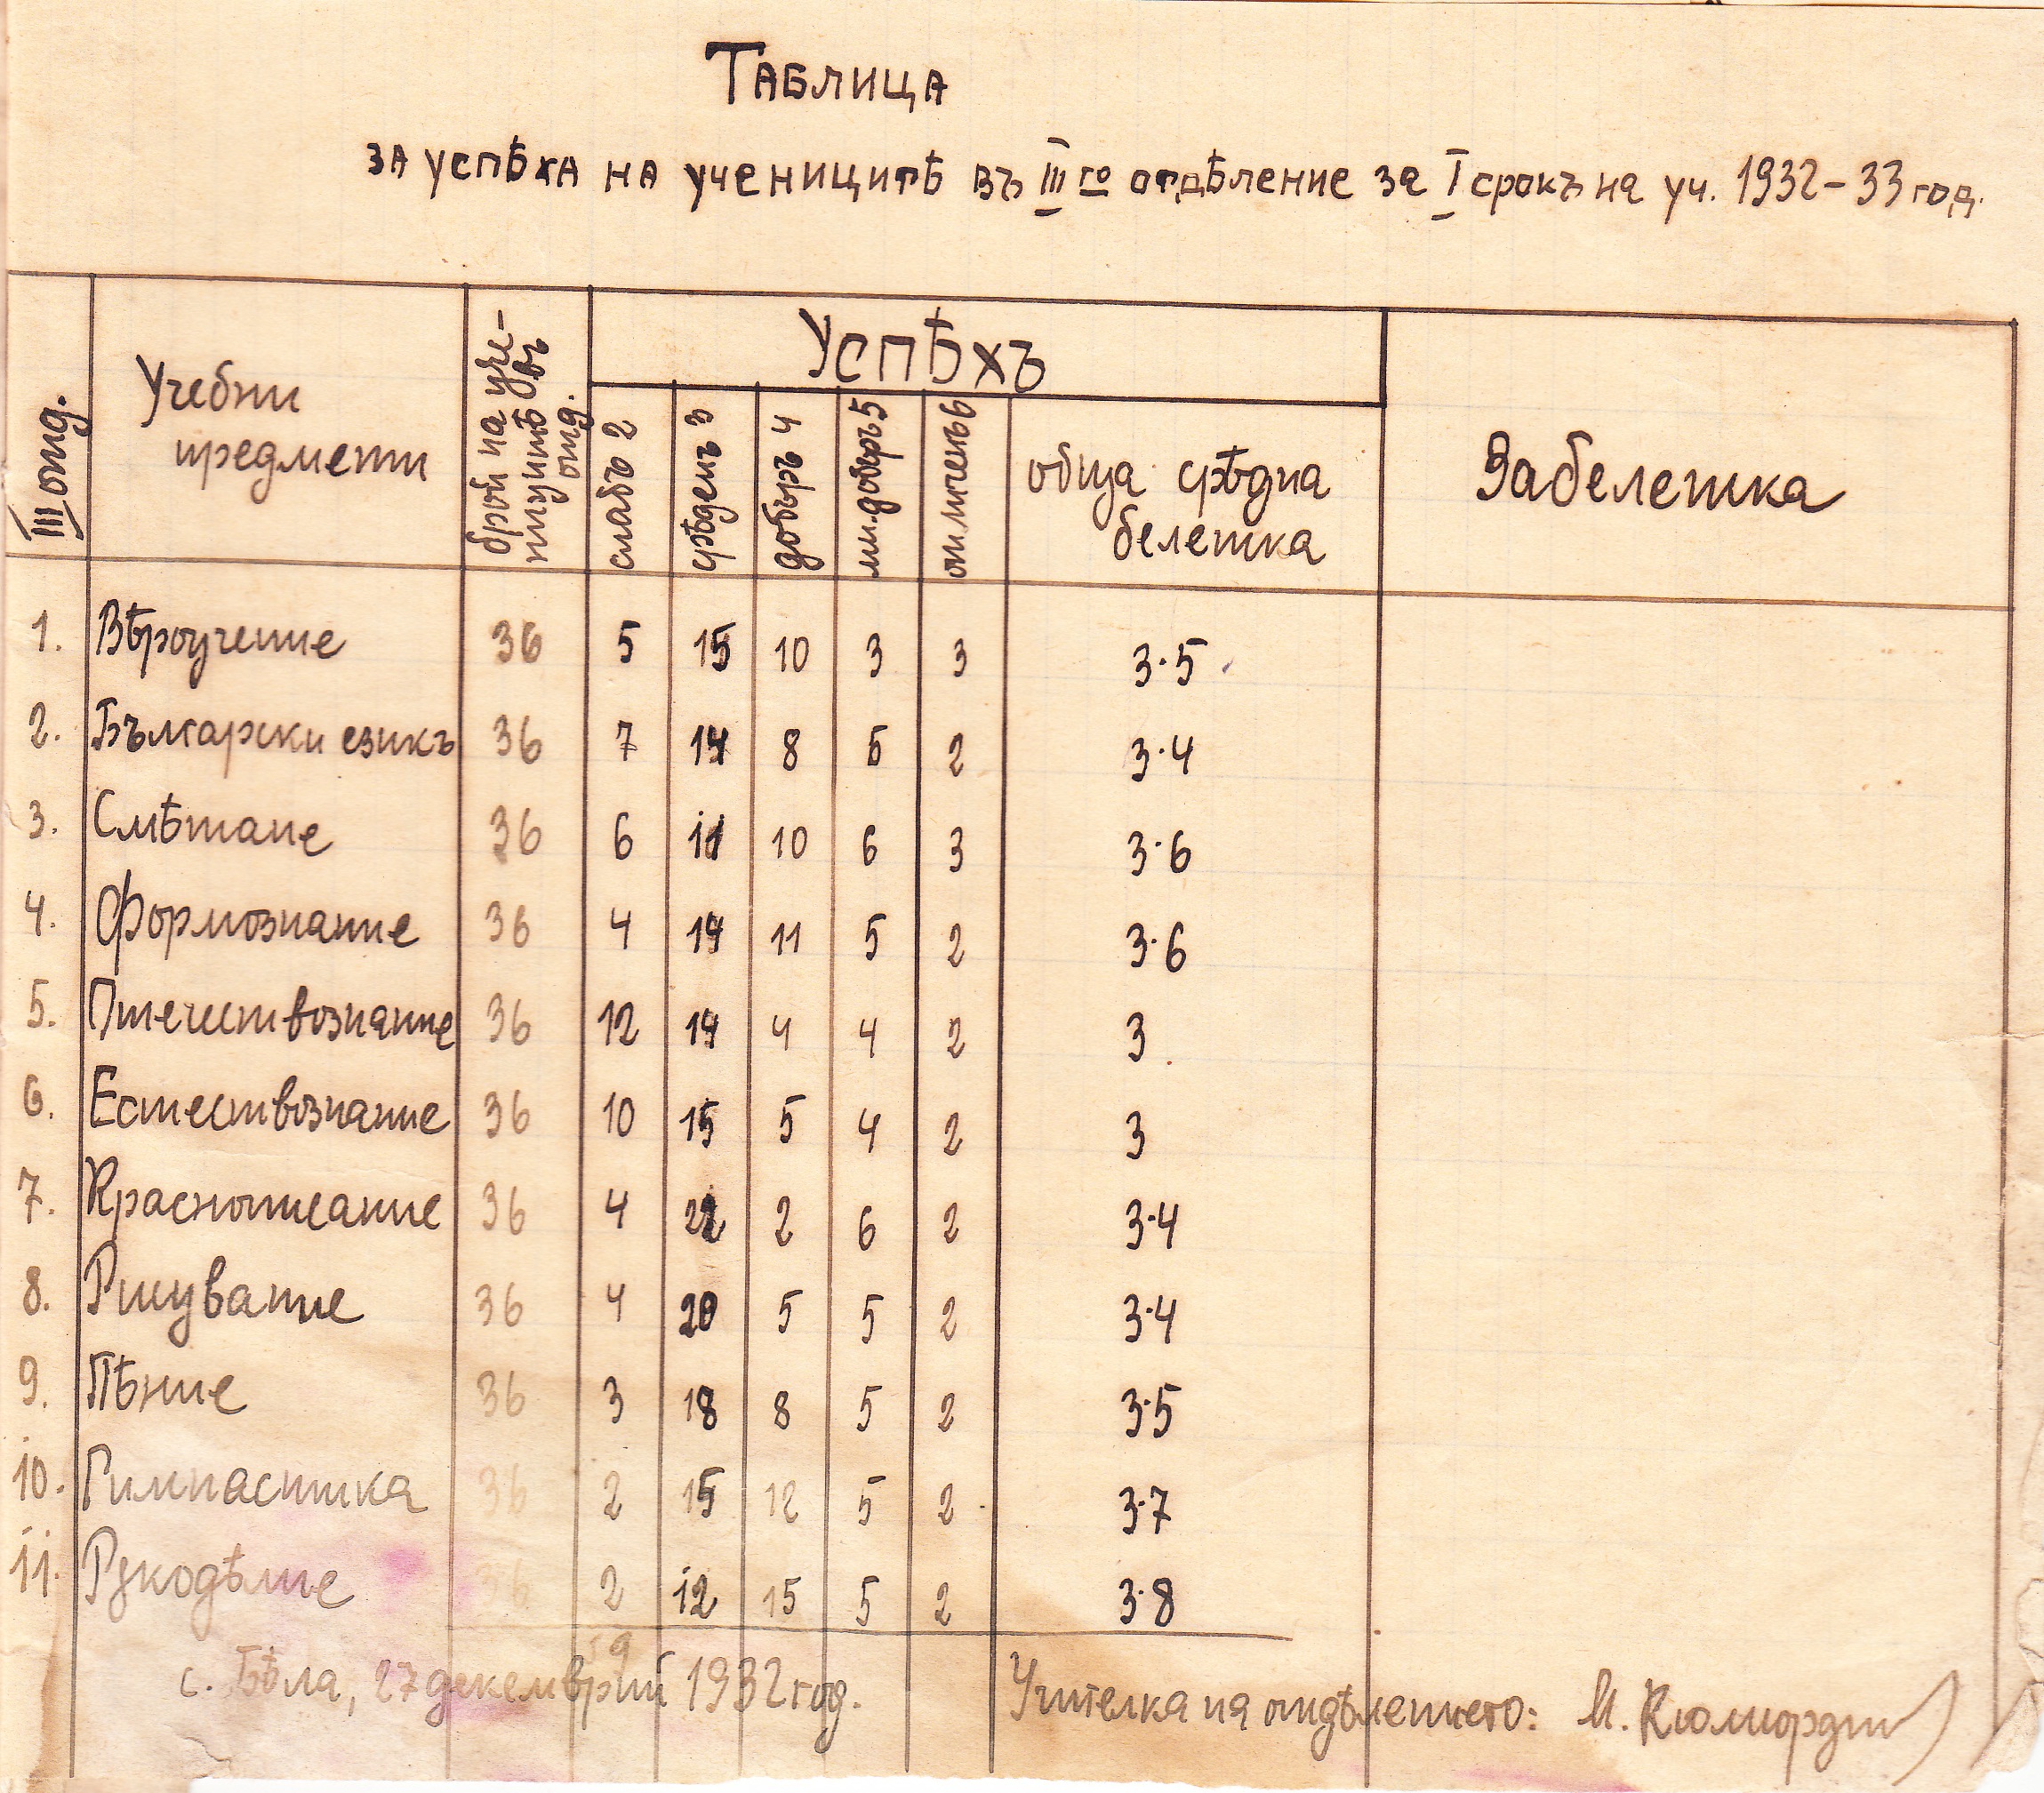 ТАБЛИЦА
ЗА УСПѢХА НА УЧЕНИЦИТѢ ВЪ III го ОТДѢЛЕНИЕ ЗА I СРОКЪ НА УЧ. 1932–33 ГОД.
III отд. Учебни предмети брой на учениците въ отд. УСПѢХЪ Забелешка
слабъ 2 срѣденъ 3 добъръ 4 мн. добъръ 5 отличенъ 6 обща срѣдна белешка
1. Вѣроучение 36 5 15 10 3 3 3·5
2. Български езикъ 36 7 14 8 5 2 3·4
3. Смѣтане 36 6 11 10 6 3 3·6
4. Формознание 36 4 14 11 5 2 3·6
5. Отечествознание 36 12 14 4 4 2 3
6. Естествознание 36 10 15 5 4 2 3
7. Краснописание 36 4 22 2 6 2 3·4
8. Рисувание 36 4 20 5 5 2 3·4
9. Пѣние 36 3 18 8 5 2 3·5
10. Гимнастика 36 2 15 12 5 2 3·7
11. Рѫкодѣлие 36 2 12 15 5 2 3·8
с. Бѣла, 27 декемврий 1932 год. Учителка на отдѣлението: М.